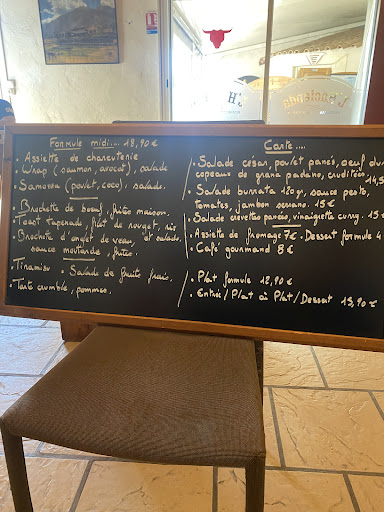 Formule midi.... 18,90 €
. Assiette de charcuterie
. Wrap (saumon, avocat), salade
. Samossa (poulet, coco), salade.
. Brochette de boeuf, frites maison.
. Toast tapenade, filet de rouget, riz
. Brochette d'onglet de veau, et salade
sauce moutarde, frites.
. Tiramisu . Salade de fruits frais,
. Tarte crumble, pommes.
Carte....
. Salade césar, poulet panés, oeuf dur
copeaux de grana padano, crudités 14,5
. Salade burrata 120gr, sauce pesto,
tomates, jambon serrano. 15 €
. Salade crevettes panées, vinaigrette curry. 15 €
. Assiette de fromage 7€ . Dessert formule 4
. Café gourmand 8 €
. Plat formule 12,90 €
. Entrée/Plat ou Plat/Dessert 15,90 €